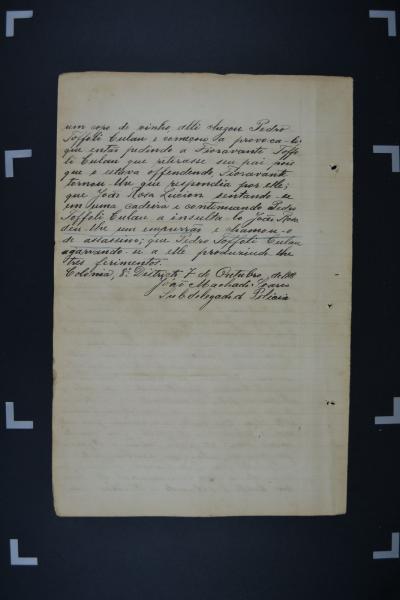 um copo de vinho, alli chegou Pedro
Toffoli Culau e começou a provoca-lo;
que então pedindo a Fioravante Toffo-
li Culau que retirasse seu pai pois
que o estava offendendo, Fioravante
tornou-lhe que respondia por elle;
que João Rosa Lucion sentando-se
em uma cadeira e continuando Pedro
Toffoli Culau a insulta-lo João Rosa
deu-lhe um empurrão e chamou-o
de assassino; que Pedro Toffoli Culau
agarrando-se a elle produzindo-lhe
tres ferimentos.
Colonia, 8º Districto 7 de Outubro, de
João Machado Soares
Sub delegado de Policia